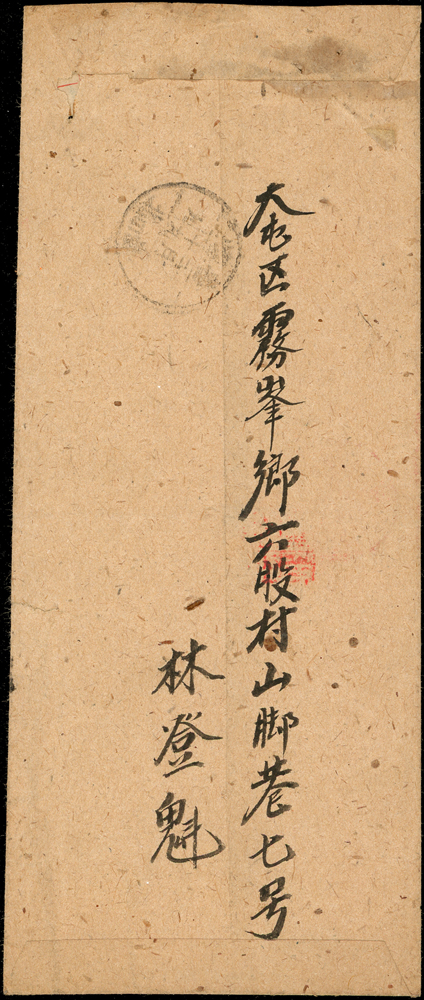 大屯区霧峯鄉六股村山脚巷七号
林登魁